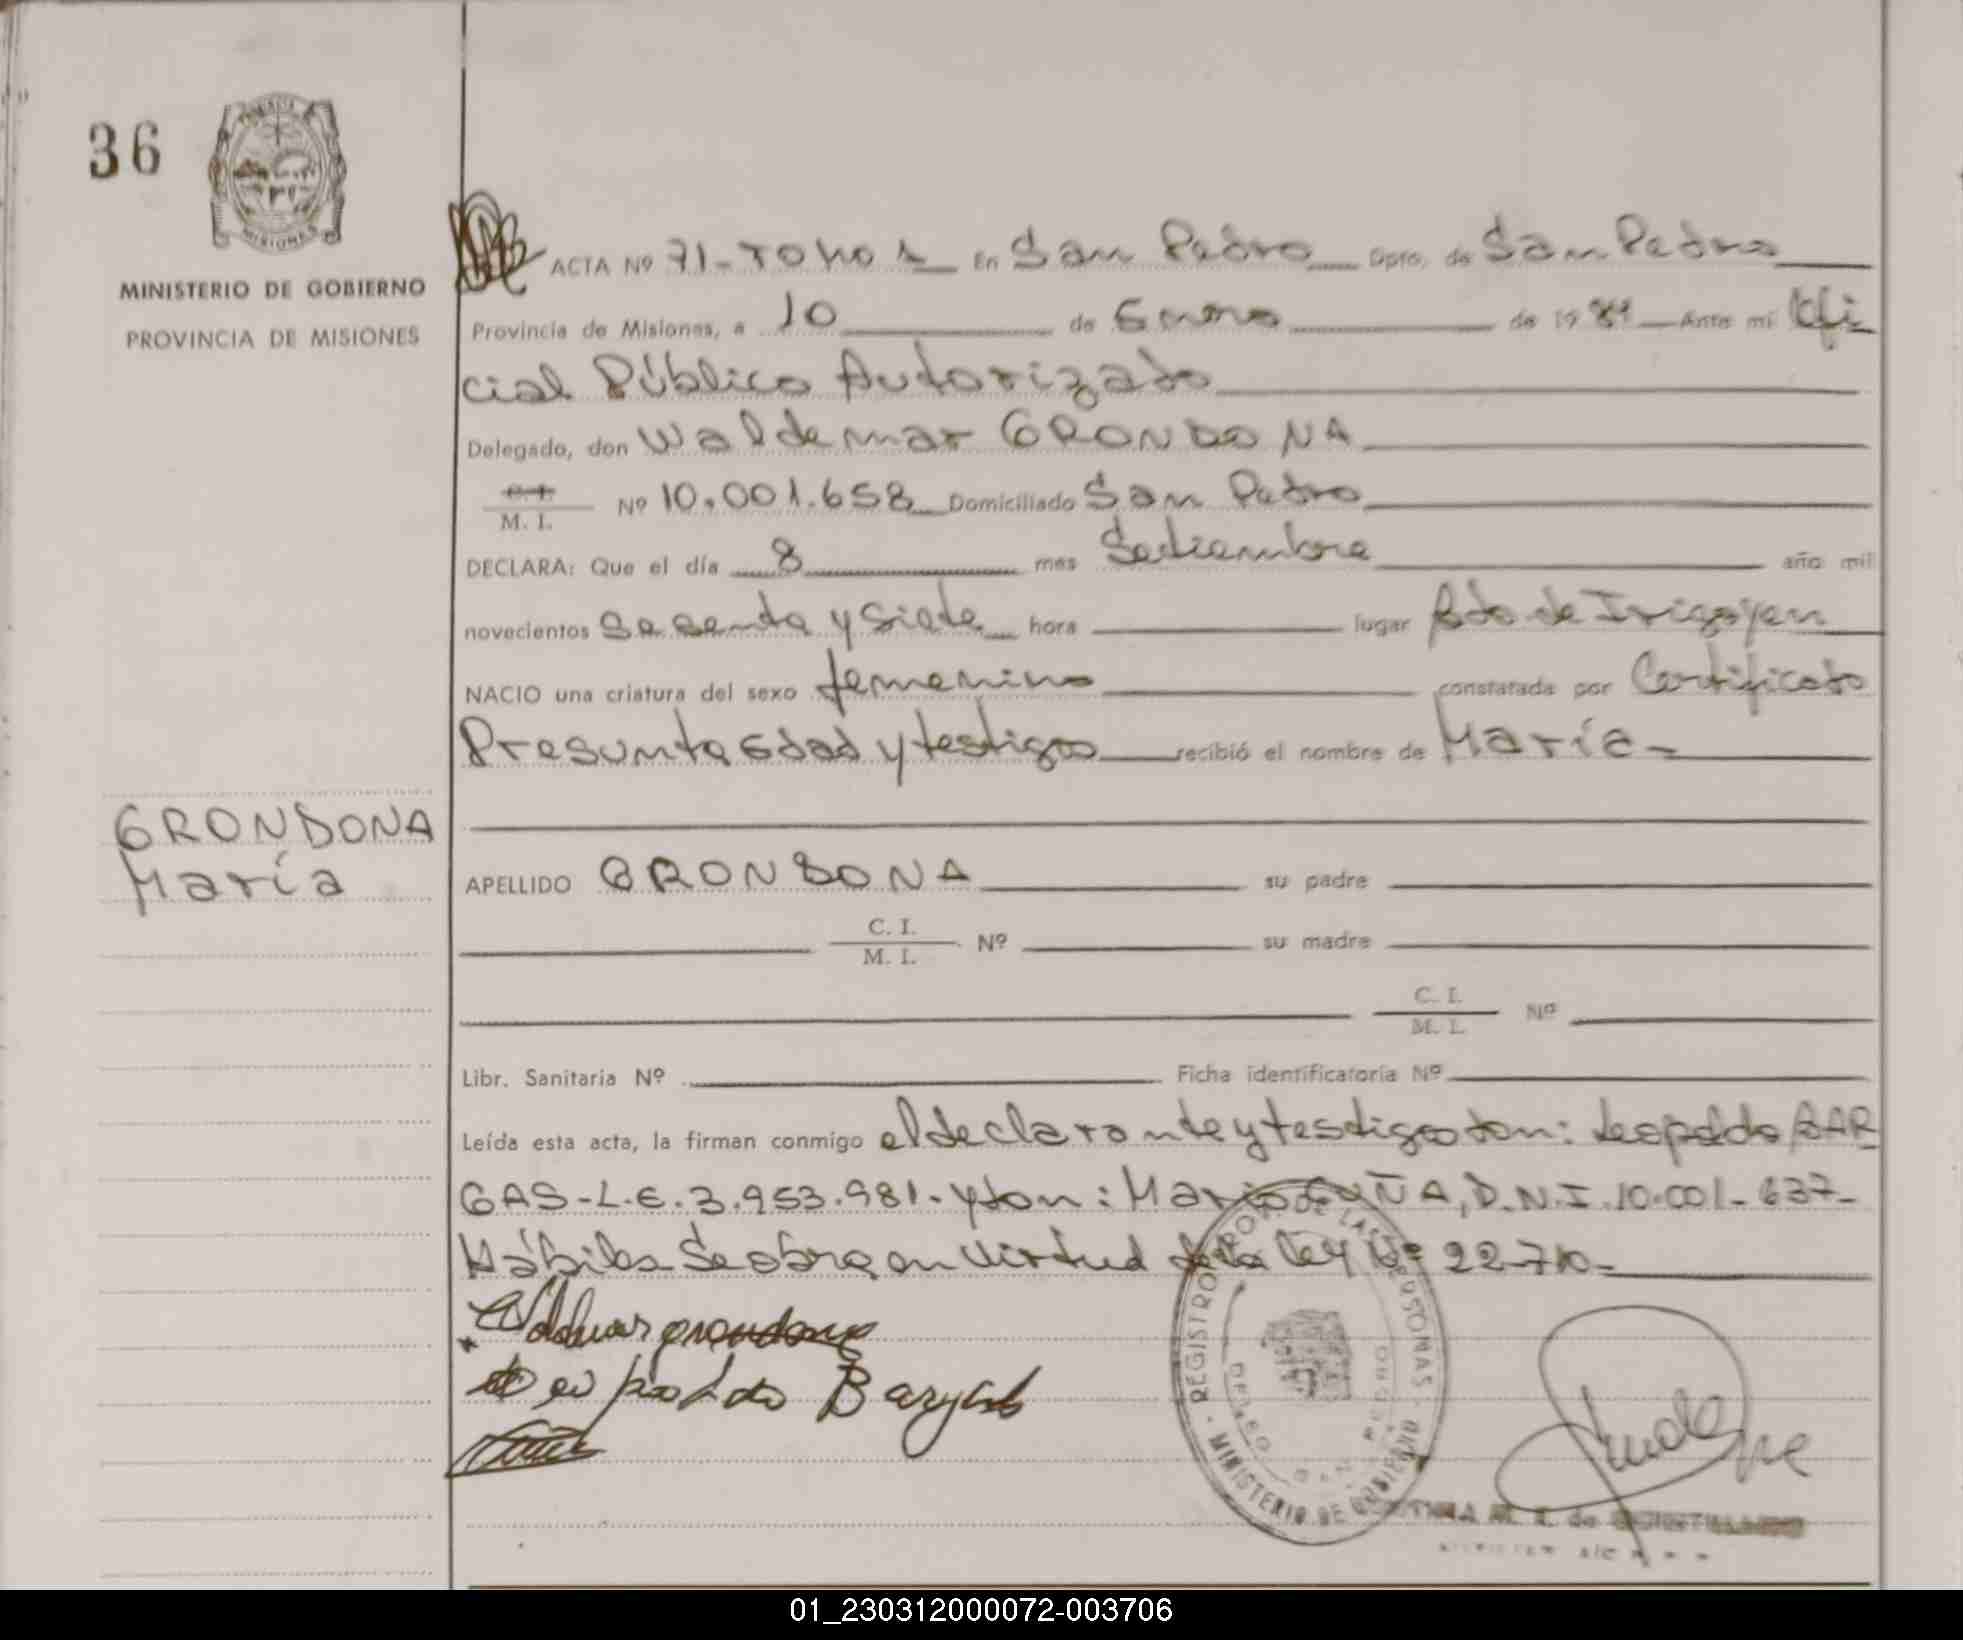 36
MISIONES
MINISTERIO DE GOBIERNO
PROVINCIA DE MISIONES
ACTA Nº 71-TOMO 1 En San Pedro Dpto. de San Pedro
Provincia de Misiones, a 10 de Enero de 19 Ante mi Ofi
cial Público Autorizado
Delegado, don Waldemar GRONDONA
C. I.
M. I. Nº 10.001.658 Domiciliado San Pedro
DECLARA: Que el día 8 mes Setiembre año mil
novecientos sesenta y siete hora lugar Bdo de Irigoyen
NACIO una criatura del sexo femenino constatada por Certificado
Presunta Edad y testigos recibió el nombre de María-
GRONDONA
María
APELLIDO GRONDONA su padre
C. I.
M. I. Nº su madre
C. I.
M. I. Nº
Libr. Sanitaria Nº Ficha identificatoria Nº
Leída esta acta, la firman conmigo el declarante y testigos don: Leopoldo BAR
GAS-L.E.3.953.981-y don: Mario CUÑA, D.N.I.10.001-637-
Hábiles Se obra en virtud de la ley Nº 22.710-
Waldemar grondona
Leopoldo Bargas
REGISTRO DE LAS PERSONAS
MINISTERIO DE GOBIERNO
SAN PEDRO
01_230312000072-003706